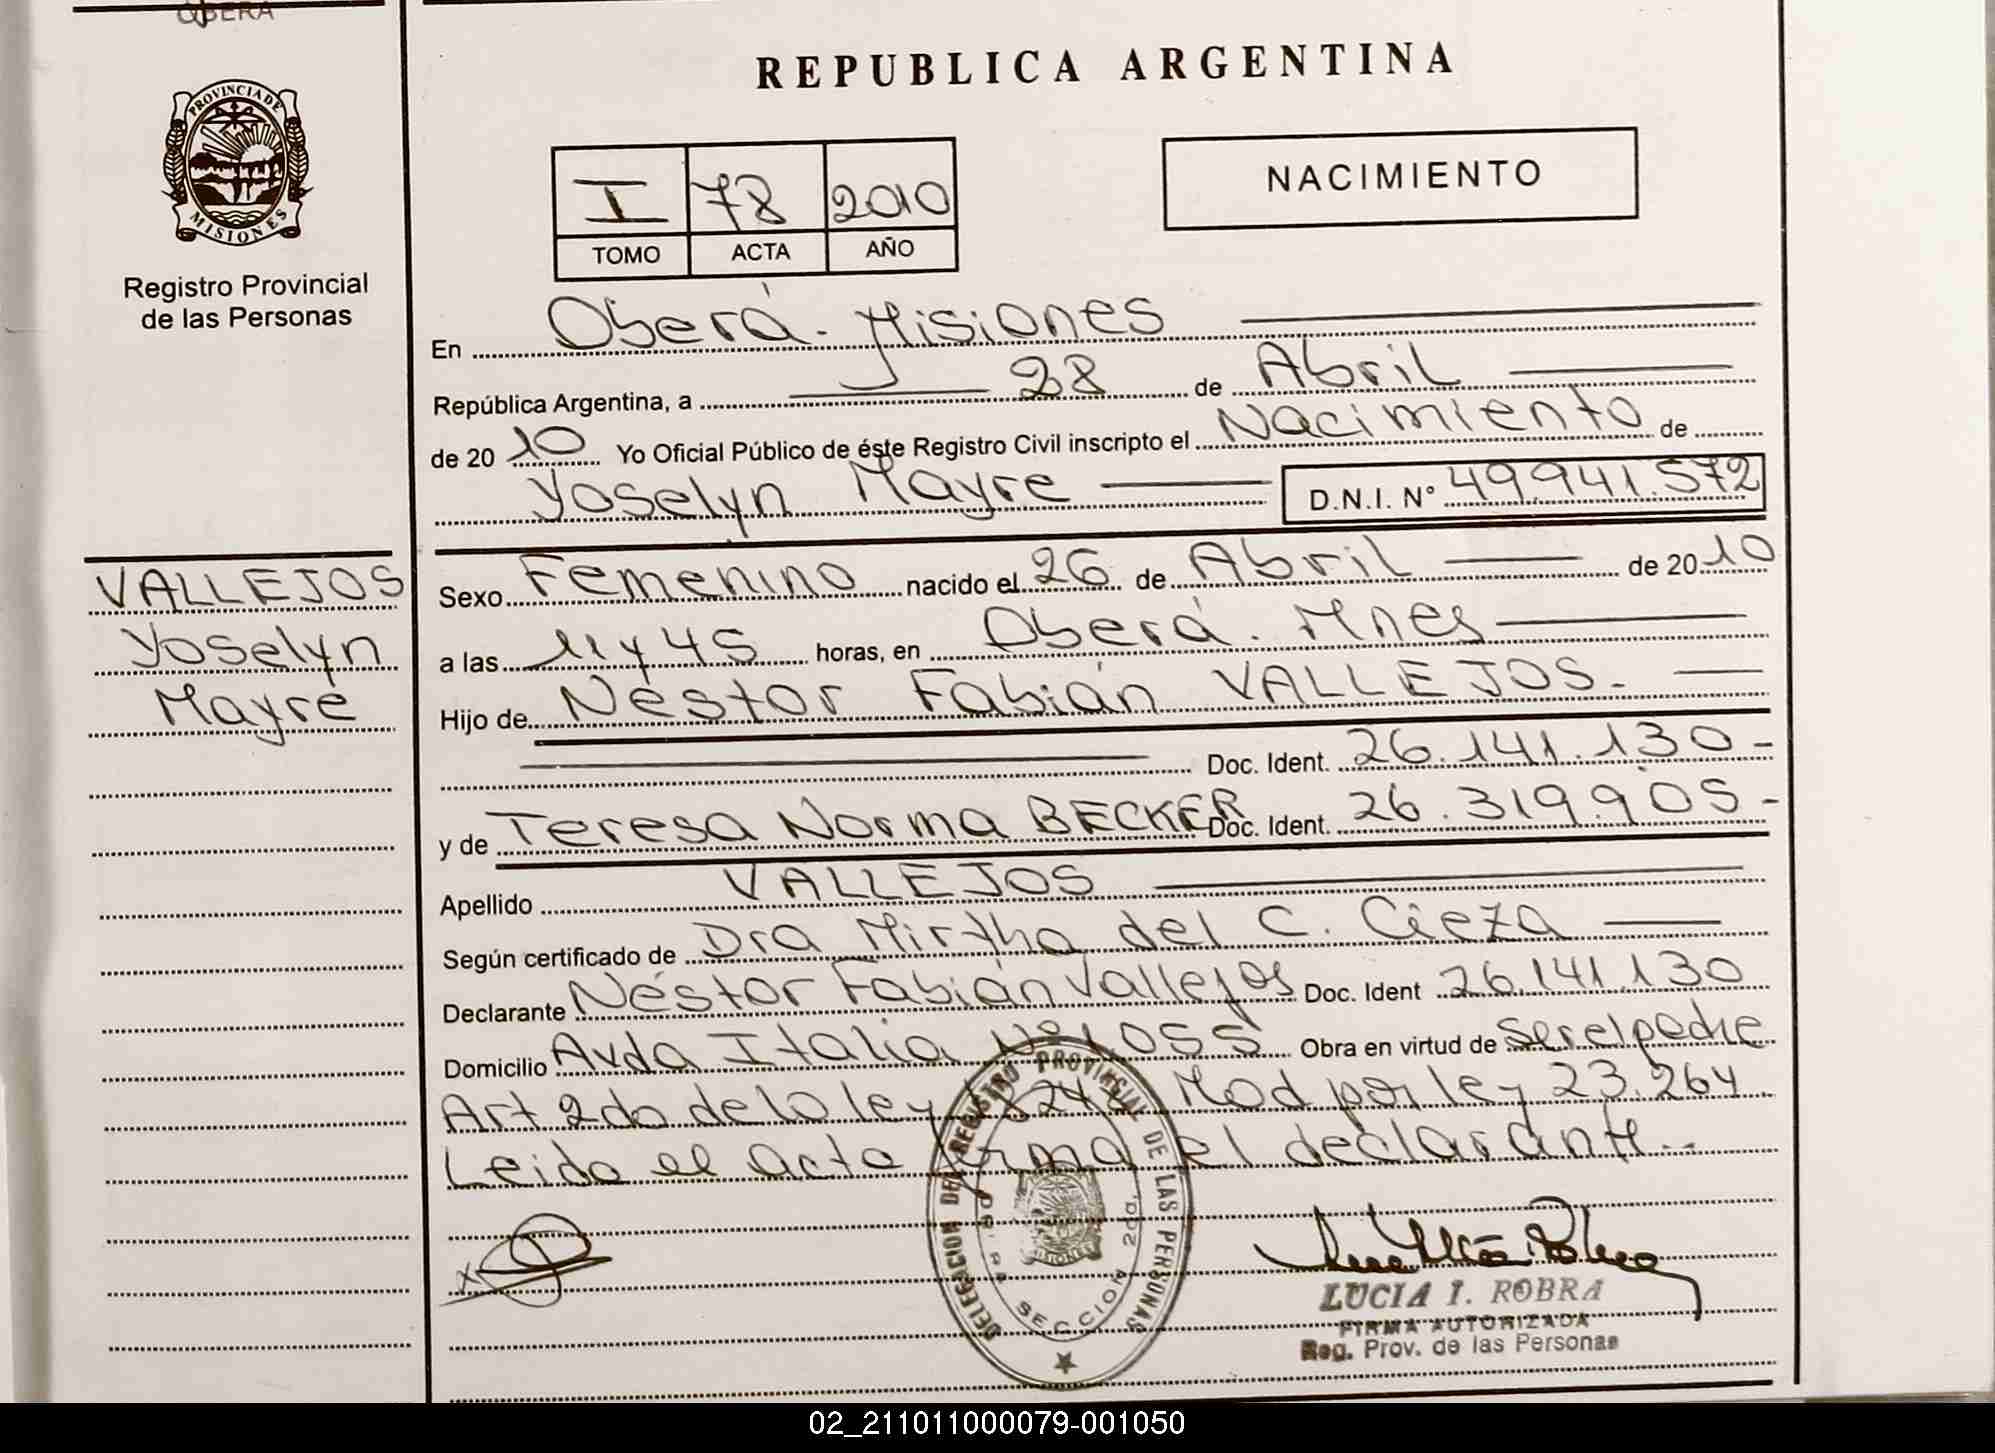 OBERA
REPUBLICA ARGENTINA
PROVINCIA DE
MISIONES
Registro Provincial
de las Personas
I 78 2010
TOMO ACTA AÑO
NACIMIENTO
En Oberá - Misiones
República Argentina, a 28 de Abril
de 2010 Yo Oficial Público de éste Registro Civil inscripto el Nacimiento de
Yoselyn Mayre D.N.I. N° 49.941.572
VALLEJOS
Yoselyn
Mayre
Sexo Femenino nacido el 26 de Abril de 2010
a las 11 y 45 horas, en Oberá. Mnes
Hijo de Néstor Fabián VALLEJOS.
Doc. Ident. 26.141.130-
y de Teresa Norma BECKER Doc. Ident. 26.319.905-
Apellido VALLEJOS
Según certificado de Dra Mirtha del C. Cieza
Declarante Néstor Fabián Vallejos Doc. Ident 26.141.130
Domicilio Avda Italia Nº 1055 Obra en virtud de Ser el padre
Art 2do de la ley 18248 Mod por ley 23.264
Leido el acta firma el declarante
DELEGACION DEL REGISTRO PROVINCIAL DE LAS PERSONAS
SECCION 2da.
LUCIA I. ROBRA
FIRMA AUTORIZADA
Reg. Prov. de las Personas
02_211011000079-001050